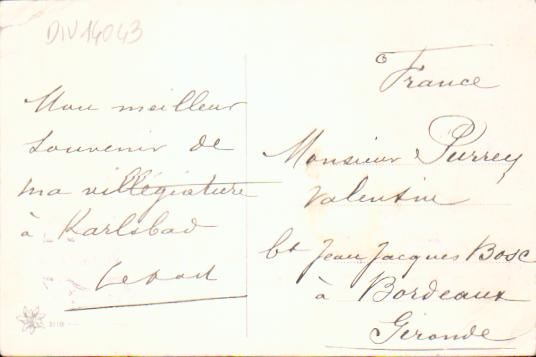 DIV14043
Mon meilleur
souvenir de
ma villégiature
à Karlsbad
France
Monsieur Purrey
Valentin
bd Jean Jacques Bosc
à Bordeaux
Gironde